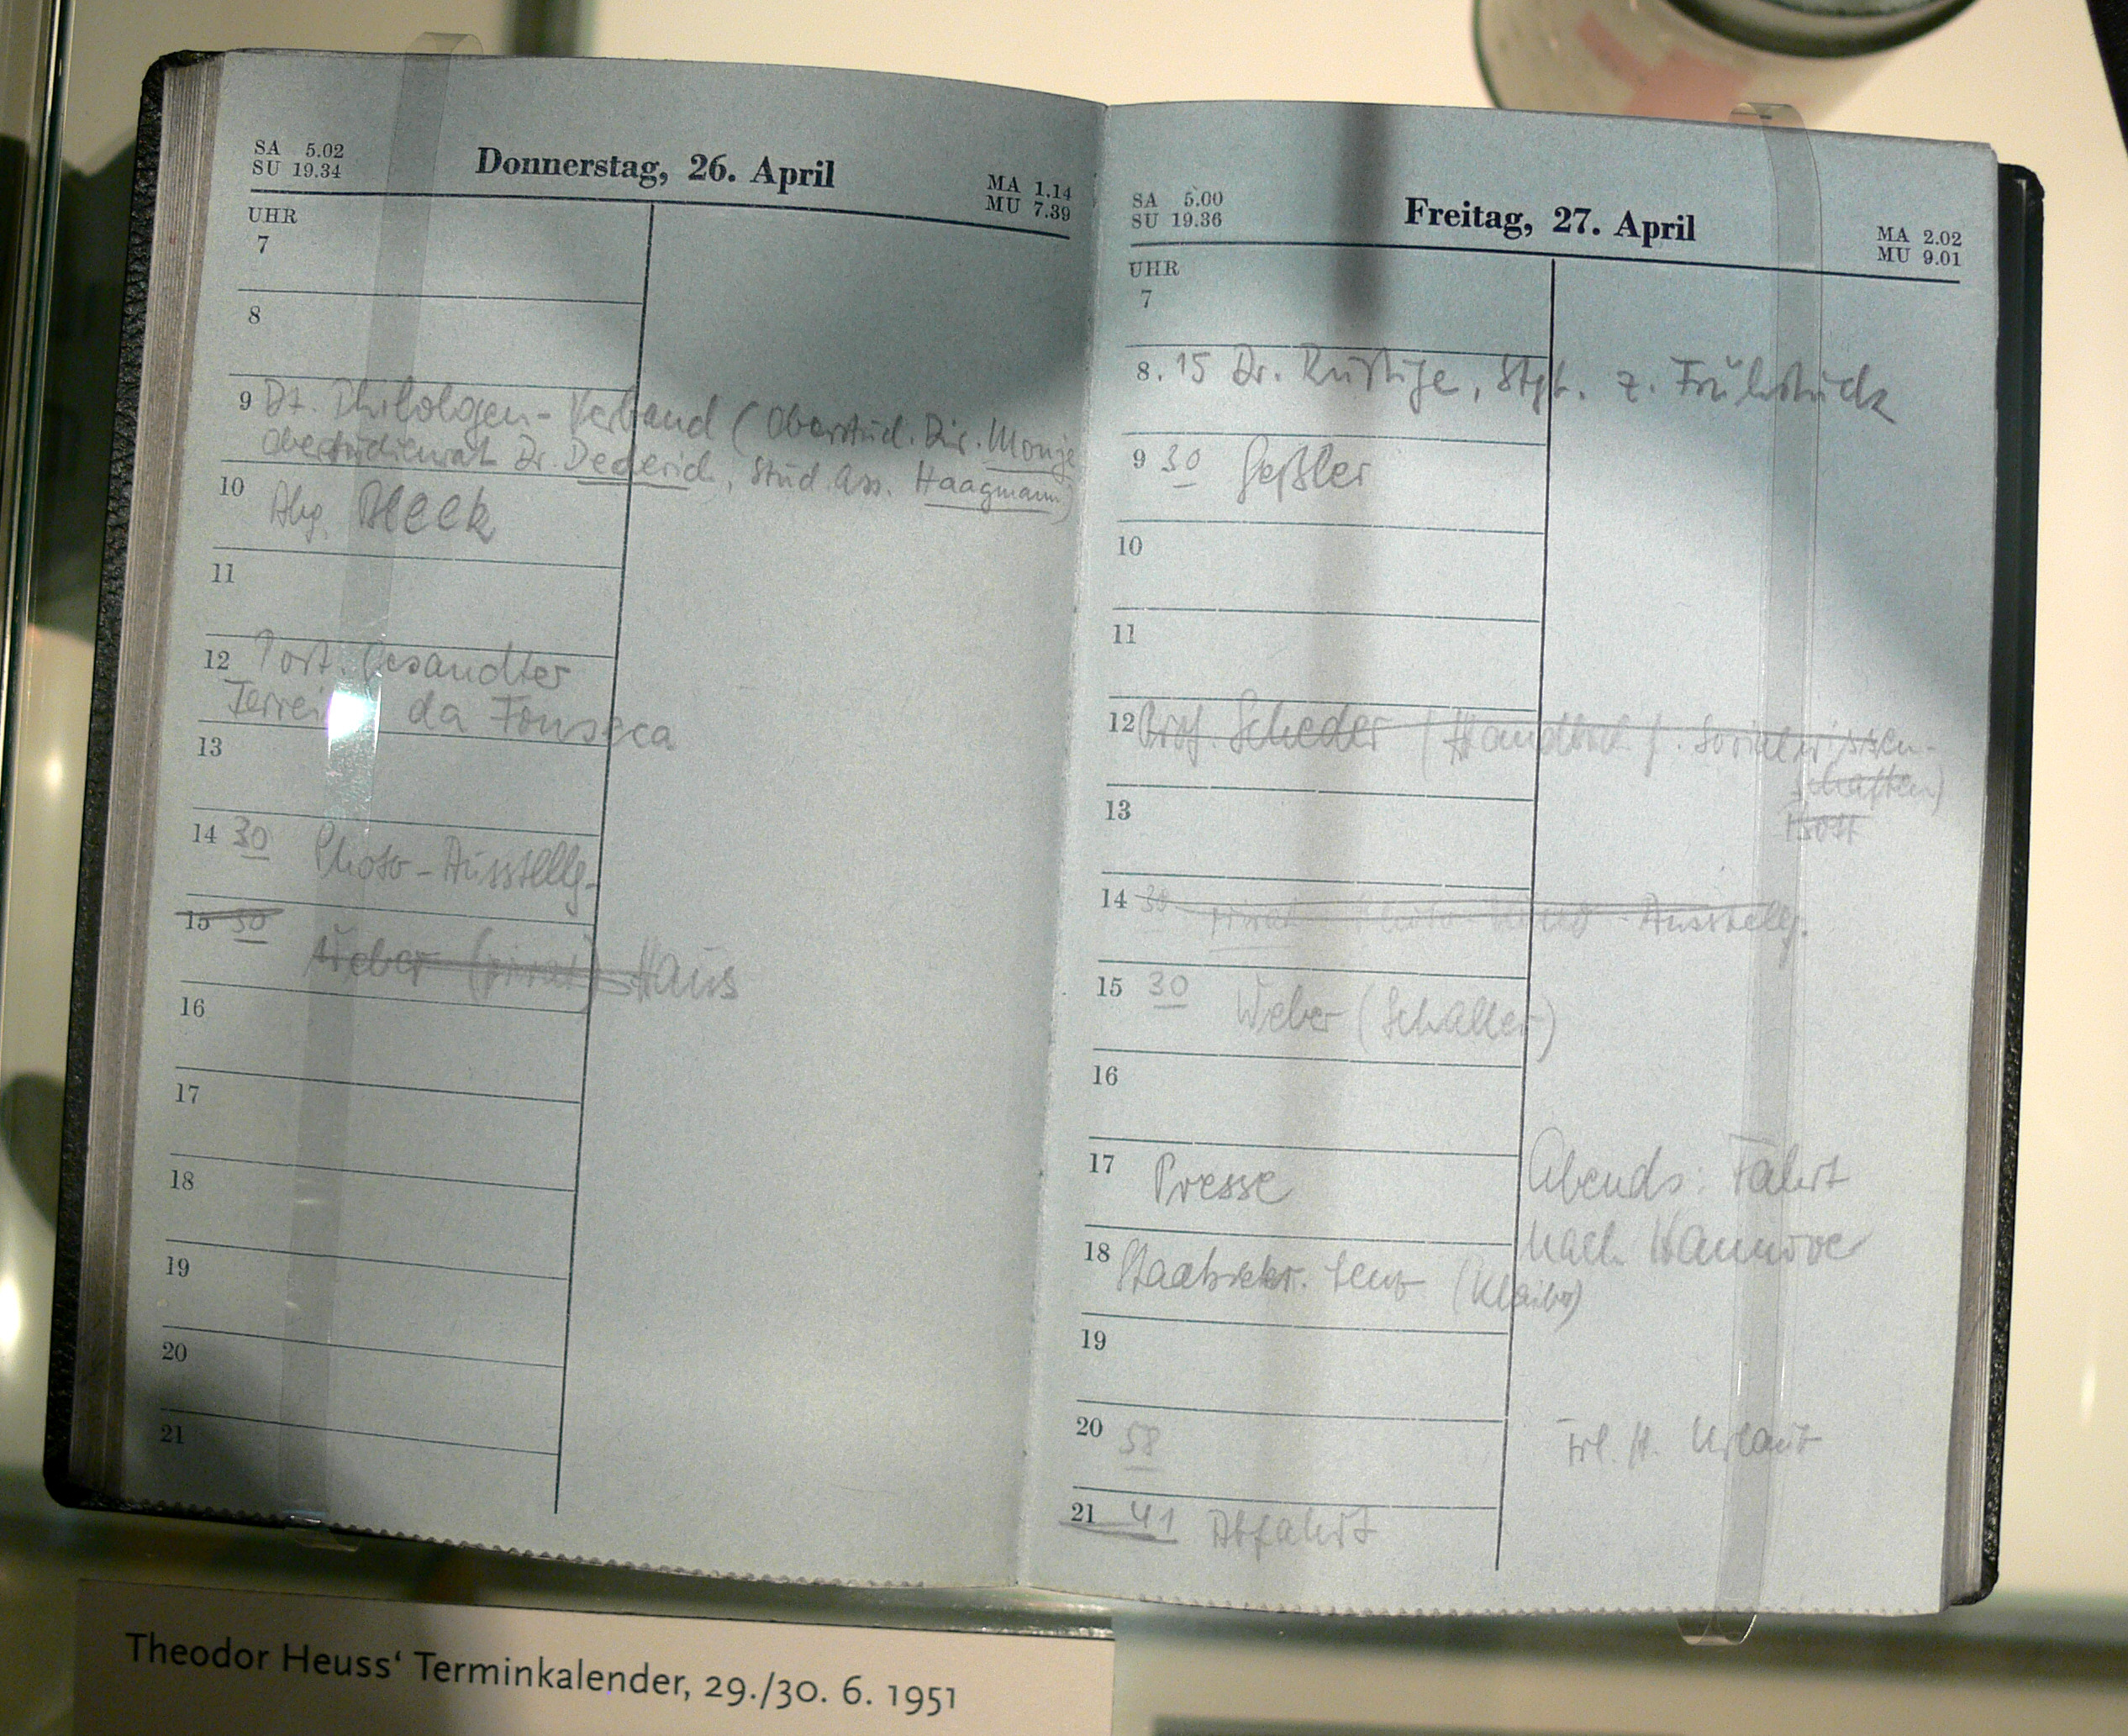 SA 5.02
SU 19.34
Donnerstag, 26. April
MA 1.14
MU 7.39
UHR
7
8
9 Dt. Philologen-Verband (Oberstud. Dir. Monje
Oberstudienrat Dr. Dederich, Stud. Ass. Haagmann)
10 Abg. Bleek
11
12 Port. Gesandter
da Fonseca
13
14 30 Photo-Ausstellg.
15 30
Weber (privat) Haus
16
17
18
19
20
21
SA 5.00
SU 19.36
Freitag, 27. April
MA 2.02
MU 9.01
UHR
7
8.15 Dr. Rustige, Stgt. z. Frühstück
9 30 Geßler
10
11
12 Prof. Scheder (Handbuch f. Sozialwissen-
schaften)
13
14 30 Ausstellg.
15 30 Weber (Schaller)
16
17 Presse
Abends: Fahrt
nach Hannover
18 Staatssekr. Lenz (Klaiber)
19
20 58
Frl. H. Urlaub
21 41 Abfahrt
Theodor Heuss‘ Terminkalender, 29./30. 6. 1951